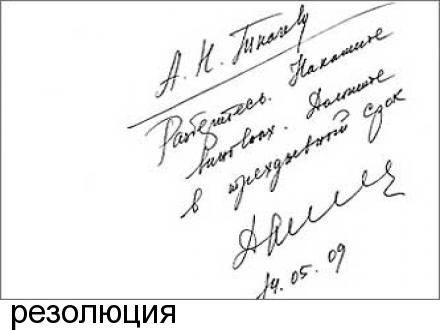 А. Н. Ткачеву
Разберитесь. Накажите
виновных. Доложите
в трехдневный срок
14.05.09
резолюция